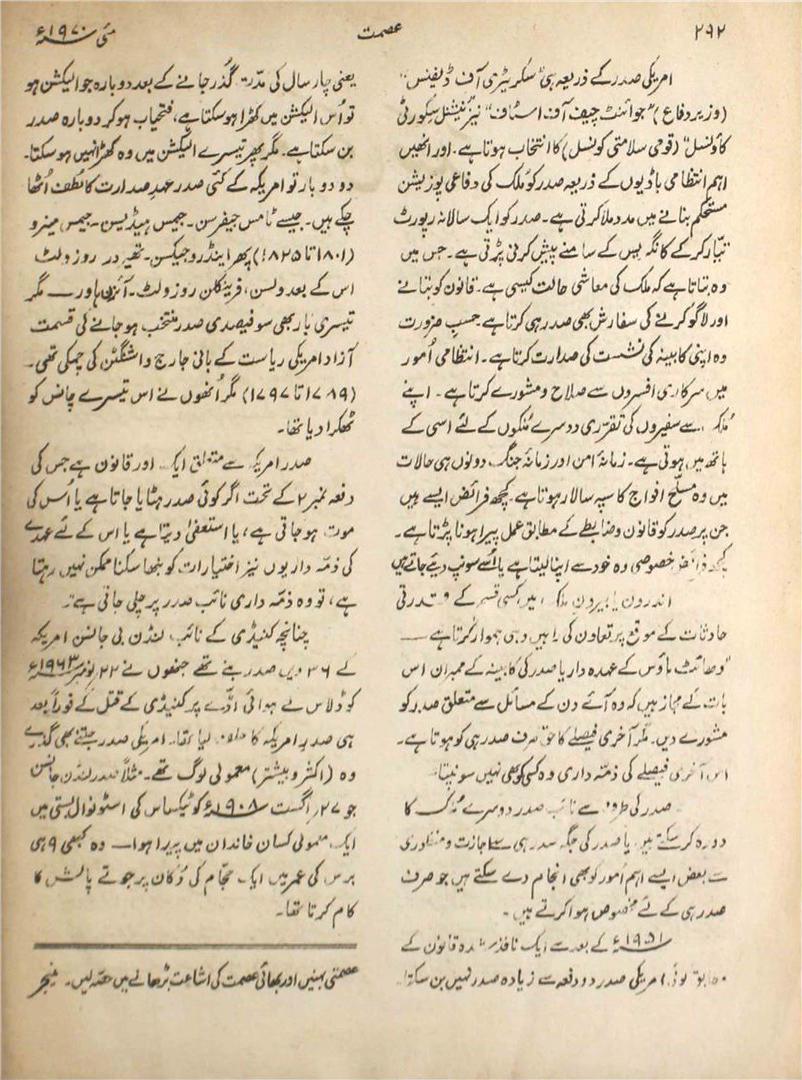 ۲۹۲
عصمت
مئی ۱۹۷۰ء
امریکی صدر کے ذریعہ ہی "سکریٹری آف ڈیفنس"
(وزیر دفاع) "جوائنٹ چیف آف اسٹاف" نیز "نیشنل سکورٹی
کاؤنسل" (قومی سلامتی کونسل) کا انتخاب ہوتا ہے۔ اور انھیں
اہم انتظامی باڈیوں کے ذریعہ صدر کو ملک کی دفاعی پوزیشن
مستحکم بنانے میں مدد ملا کرتی ہے۔ صدر کو ایک سالانہ رپورٹ
تیار کر کے کانگریس کے سامنے پیش کرنی پڑتی ہے۔ جس میں
وہ بتاتا ہے کہ ملک کی معاشی حالت کیسی ہے۔ قانون کو بنانے
اور لاگو کرنے کی سفارش بھی صدر ہی کرتا ہے۔ حسبِ ضرورت
وہ اپنی کابینہ کی نشست کی صدارت کرتا ہے۔ انتظامی اُمور
میں سرکاری افسروں سے صلاح و مشورے کرتا ہے۔ اپنے
ملک سے سفیروں کی تقرری دوسرے ملکوں کے لئے اسی کے
ہاتھ میں ہوتی ہے۔ زمانۂ امن اور زمانۂ جنگ دونوں ہی حالات
میں وہ مسلّح افواج کا سپہ سالار ہوتا ہے۔ کچھ فرائض ایسے ہیں
جن پر صدر کو قانون و ضابطے کے مطابق عمل پیرا ہونا پڑتا ہے۔
کچھ فرائض خصوصی وہ خود سے اپنا لیتا ہے یا اُسے سونپ دیئے جاتے ہیں
اندرون یا بیرون ملک میں کسی قسم کے قدرتی
حادثات کے موقع پر تعاون کی راہیں وہی ہموار کرتا ہے —
"وھائٹ ہاؤس کے عہدہ دار یا صدر کی کابینہ کے ممبران اس
بات کے مجاز ہیں کہ وہ آئے دن کے مسائل سے متعلق صدر کو
مشورے دیں۔ مگر آخری فیصلے کا حق صرف صدر ہی کو ہوتا ہے۔
اس آخری فیصلے کی ذمّہ داری وہ کسی کو بھی نہیں سونپتا۔
صدر کی طرف سے نائب صدر دوسرے ممالک کا
دورہ کر سکتے ہیں یا صدر کی جگہ صدر ہی سے اجازت و منظوری
سے بعض ایسے اہم اُمور کو بھی انجام دے سکتے ہیں جو صرف
صدر ہی کے لئے مخصوص ہوا کرتے ہیں۔
۱۹۵۱ء کے بعد سے ایک نافذ شدہ قانون کے
مطابق کوئی امریکی صدر دو دفعہ سے زیادہ صدر نہیں بن سکتا۔
یعنی چار سال کی مدّت گذر جانے کے بعد دوبارہ جو الیکشن ہو
تو اُس الیکشن میں کھڑا ہو سکتا ہے، فتحیاب ہو کر دوبارہ صدر
بن سکتا ہے۔ مگر پھر تیسرے الیکشن میں وہ کھڑا نہیں ہو سکتا۔
دو دو بار تو امریکہ کے کئی صدر عہدِ صدارت کا لطف اُٹھا
چکے ہیں۔ جیسے ٹامس جیفرسن۔ جیمس میڈیسن۔ جیمس مینرو
(۱۸۰۱ تا ۱۸۲۵) پھر اینڈرو جیکسن۔ تھیوڈر روز ولٹ
اس کے بعد ولسن، فرینکلن روز ولٹ۔ آئزن ہاور — مگر
تیسری بار بھی سو فیصدی صدر منتخب ہو جانے کی قسمت
آزاد امریکی ریاست کے بانی جارج واشنگٹن کی چمکی تھی۔
(۱۷۸۹ تا ۱۷۹۷) مگر اُنھوں نے اس تیسرے چانس کو
ٹھکرا دیا تھا۔
صدر امریکہ سے متعلق ایک اور قانون ہے جس کی
دفعہ نمبر ۲ کے تحت اگر کوئی صدر ہٹایا جاتا ہے یا اُس کی
موت ہو جاتی ہے، یا استعفیٰ دیتا ہے یا اس کے لئے عہدے
کی ذمّہ داریوں نیز اختیارات کو نبھا سکنا ممکن نہیں رہتا
ہے، تو وہ ذمّہ داری نائب صدر پر چلی جاتی ہے۔
چنانچہ کنیڈی کے نائب لنڈن بی جانسن امریکہ
کے ۳۶ ویں صدر بنے تھے جنھوں نے ۲۲ نومبر ۱۹۶۳ء
کو ڈلاس کے ہوائی اڈّے پر کنیڈی کے قتل کے فوراً بعد
ہی صدر امریکہ کا حلف لیا تھا۔ امریکی صدر جتنے بھی گذرے
وہ (اکثر و بیشتر) معمولی لوگ تھے۔ مثلاً صدر لنڈن جانسن
جو ۲۷ اگست ۱۹۰۸ء کو ٹیکساس کی اسٹونوال بستی میں
ایک معمولی کسان خاندان میں پیدا ہوا — وہ کبھی ۹ ہی
برس کی عمر میں ایک حجّام کی دُکان پر جوتے پالش کا
کام کرتا تھا۔
عصمتی بہنیں اور بھائی عصمت کی اشاعت بڑھانے میں حصہ لیں۔ منیجر